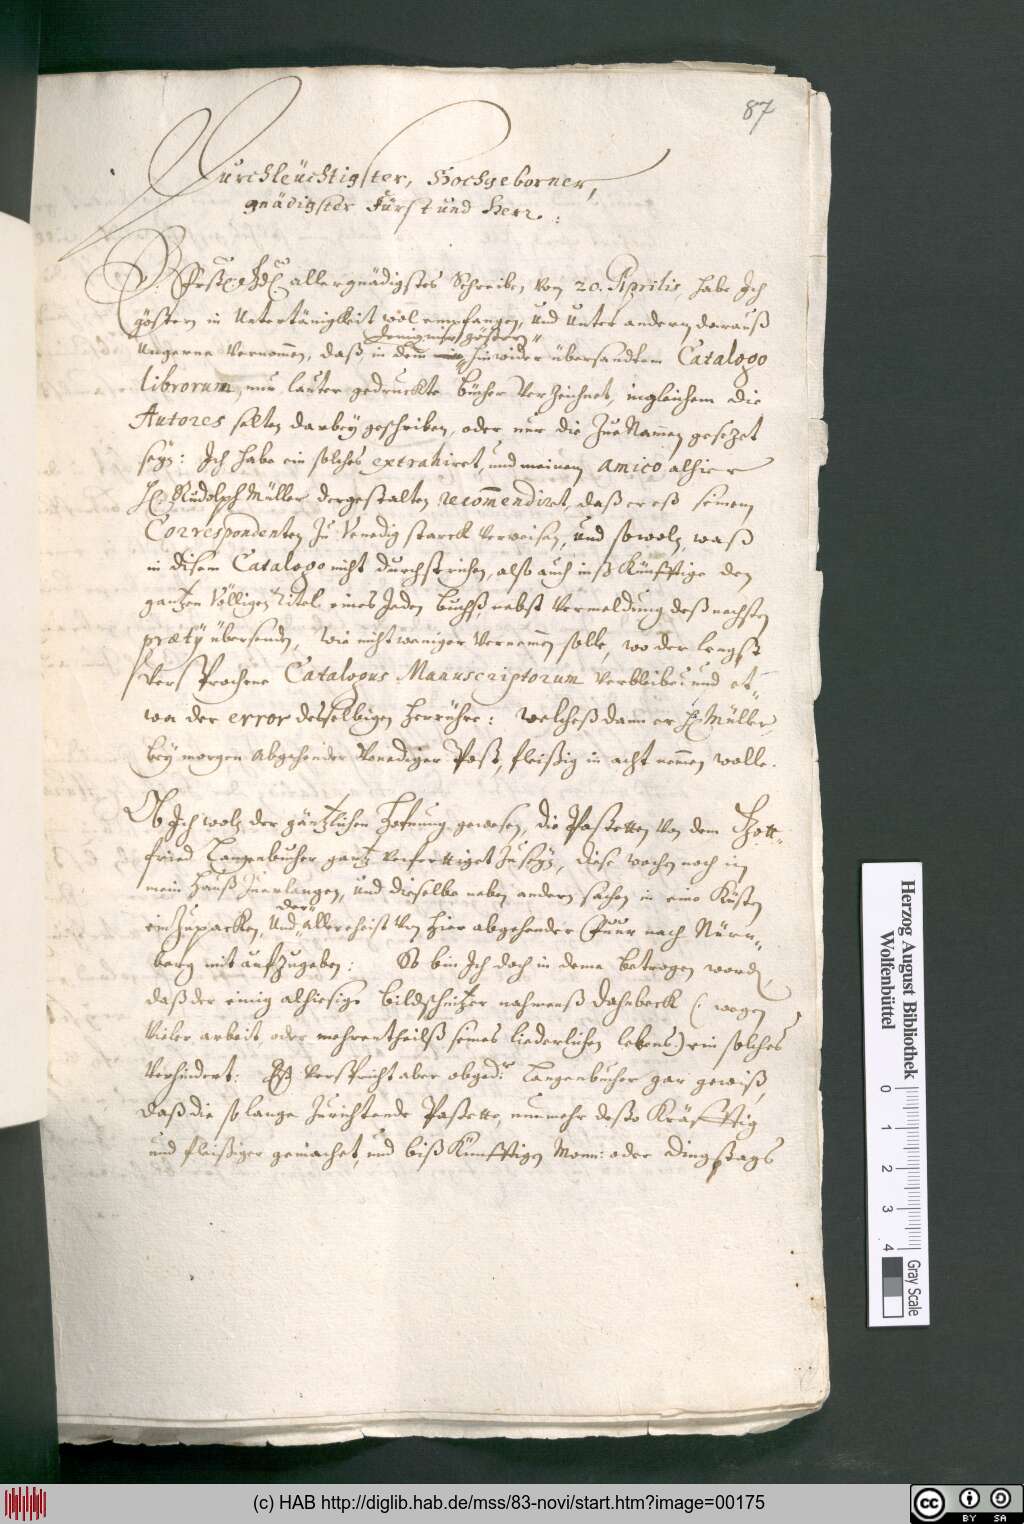 87
Durchleüchtigster, Hochgeborner,
gnädigster Fürst und Herr:
allergnädigstes Schreiben vom 20. Aprilis, habe Ich
göstern in Untertänigkeit wol empfangen, und unter andern darauß
ungerne vernommen, daß, in dem hinwider übersandtem Catalogo
librorum, nur lauter gedruckte Bücher verzeichnet, ingleichem die
Autores selten darbey geschriben, oder nur die Zue Namen gesezet
seyn: Ich habe ein solches extrahiret, und meinem amico alhier
H: Rudolph Müller dergestalten recom̅endirt, daß er eß seinem
Correspondenten zu Venedig starck verweisen, und sowoln, waß
in disem Catalogo nicht durchstrichen, also auch inß Künfftige den
gantzen völligen Titel eines Jeden Buchß, nebst vermeldung deß nechsten
prætÿ übersenden, wie nicht weniger vernemmen solle, wo der lengst
versprochene Catalogus Manuscriptorum verbleibe: und et„
wa der error desselbigen herrühre: welcheß dann er H: Müller,
bey morgen abgehender Venediger Post, fleißig in acht nemmen wolle.
Ob Ich woln der gäntzlichen Hofnung gewesen, die Pastetten von dem Gott„
fried Langenbucher gantz verfertiget zu seyn, diese wochen noch in
mein Hauß zuerlangen, und dieselbe neben andern sachen in eine Kisten
einzupacken, und der
allererst von hier abgehender Fuur nach Nürn„
berg mit aufzugeben: So bin Ich doch in deme betrogen worden,
daß der einig alhiesige Bildschnitzer nahmenß Dahnbeck (: wegen
vieler arbeit oder mehrentheilß seines liederlichen lebens:) ein solches
verhindert: Es verspricht aber obged: Langenbucher gar gewiß,
daß die so lange zurichtende Pastette, nunmehr desto Kräfftig
und fleißiger gemachet, und biß Künfftigen Mon: oder Dingstags
Herzog August Bibliothek
Wolfenbüttel
0 1 2 3 4
Gray Scale
(c) HAB http://diglib.hab.de/mss/83-novi/start.htm?image=00175
cc BY SA